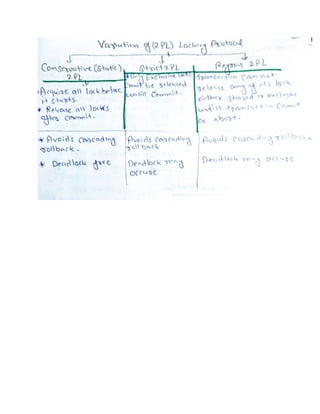 Variation of (2PL) Locking Protocol
Conservative (Static) 2PL
• Acquire all lock before
it starts.
* Release all locks
after commit.
* Avoids cascading
rollback.
* Deadlock free
Strict 2PL
* Only Exclusive locks
Cannot be released
until Commit.
Avoids cascading
rollback
Deadlock may
occuse
Regrous 2PL
Transaction can not
release any of its lock
either shared or exclusive
untill transaction Commit
or abort.
Avoids cascading rollback
Deadlock may occuse